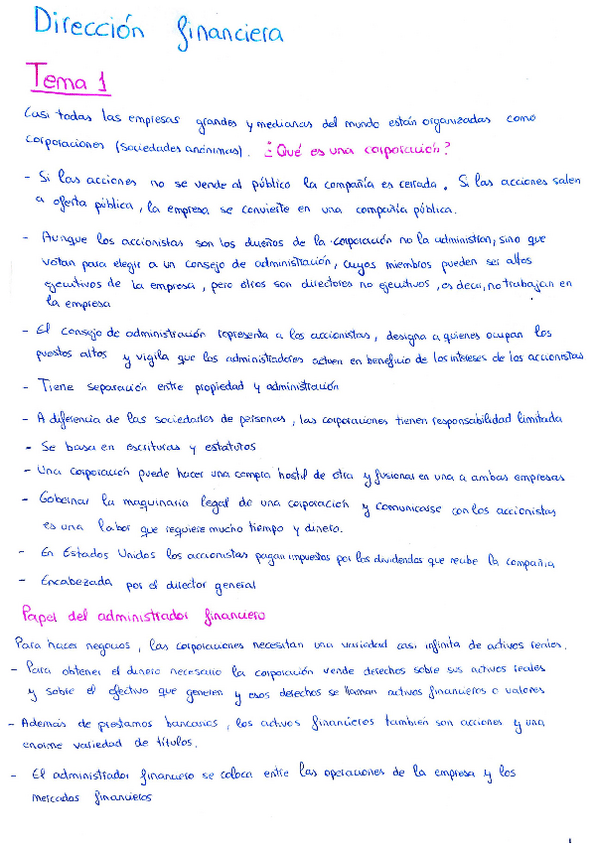 Dirección financiera
Tema 1
Casi todas las empresas grandes y medianas del mundo están organizadas como
corporaciones (sociedades anónimas). ¿Qué es una corporación?
- Si las acciones no se vende al público la compañía es cerrada. Si las acciones salen
a oferta pública, la empresa se convierte en una compañía pública.
- Aunque los accionistas son los dueños de la corporación no la administran, sino que
votan para elegir a un consejo de administración, cuyos miembros pueden ser altos
ejecutivos de la empresa, pero otros son directores no ejecutivos, es decir, no trabajan en
la empresa
- El consejo de administración representa a los accionistas, designa a quienes ocupan los
puestos altos y vigila que los administradores actuen en beneficio de los intereses de los accionistas
- Tiene separación entre propiedad y administración
- A diferencia de las sociedades de personas, las corporaciones tienen responsabilidad limitada
- Se basa en escrituras y estatutos
- Una corporación puede hacer una compra hostil de otra y fusionar en una a ambas empresas
- Gobernar la maquinaria legal de una corporación y comunicarse con los accionistas
es una labor que requiere mucho tiempo y dinero.
- En Estados Unidos los accionistas pagan impuestos por los dividendos que recibe la compañía
- Encabezada por el director general
Papel del administrador financiero
Para hacer negocios, las corporaciones necesitan una variedad casi infinita de activos reales.
- Para obtener el dinero necesario la corporación vende derechos sobre sus activos reales
y sobre el efectivo que generen y esos derechos se llaman activos financieros o valores
- Además de prestamos bancarios, los activos financieros también son acciones y una
enorme variedad de títulos.
- El administrador financiero se coloca entre las operaciones de la empresa y los
mercados financieros